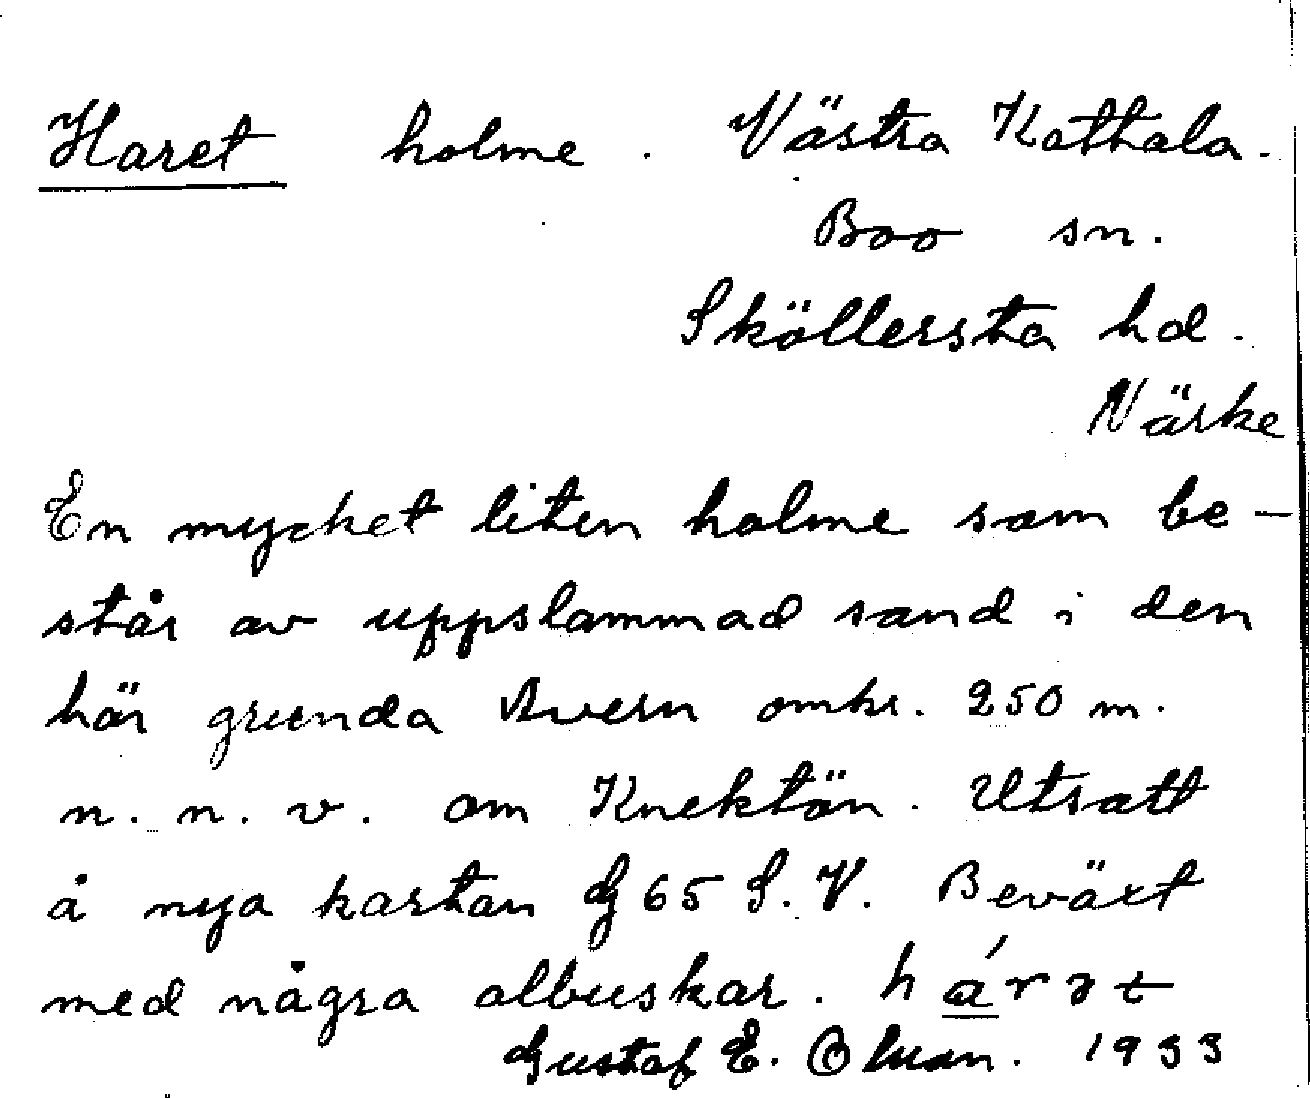 Haret holme. Västra Kathala.
Boo sn.
Sköllersta hd.
Närke
En mycket liten holme som be-
står av uppslammad sand i den
här grunda Avern omkr. 250 m.
n. n. v. om Knektön. Utsatt
å nya kartan G 65 S. V. Beväxt
med några albuskar. hárət
Gustaf E. Ohman. 1933